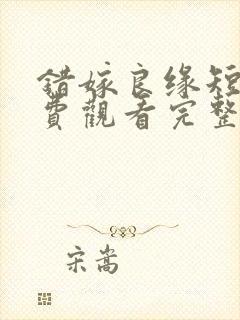 错嫁良缘短
費觀看完整
宋嵩